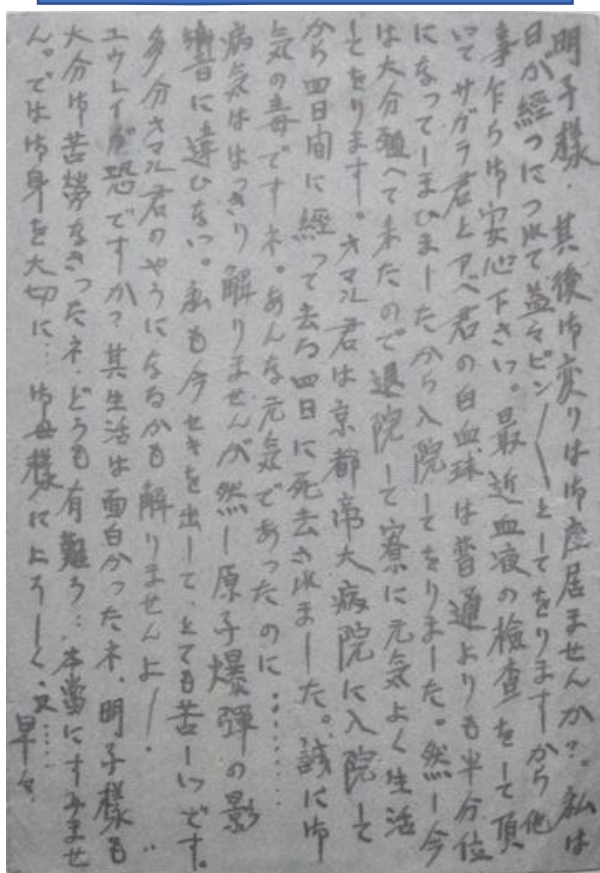 明子様．其後御変りは御座居ませんか？。私は
日が經つにつれて益々ピン〱としてをりますから他
事乍ら御安心下さい。最近血液の檢査をして頂
いてサガラ君とアベ君の白血球は普通よりも半分位
になってしまひましたから入院してをりました。然し今
は大分殖へて来たので退院して寮に元気よく生活
してをります。オマル君は京都帝大病院に入院して
から四日間に經って去る四日に死去されました。誠に御
気の毒ですネ。あんな元気であったのに………
病気ははっきり解りませんが然し原子爆彈の影
響に違ひない。私も今セキを出して、とても苦しいです。
多分オマル君のやうになるかも解りませんよ―．
ユウレイが恐ですか？其生活は面白かったネ．明子様も
大分御苦勞なさったネ．どうも有難う…本当にすみませ
ん。では御身を大切に…御母様によろしく．又……
早々